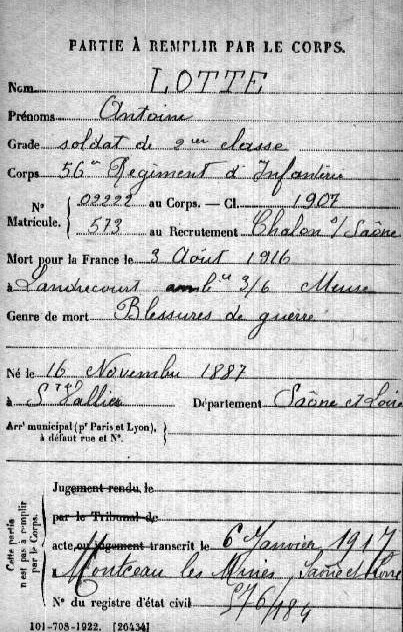 PARTIE À REMPLIR PAR LE CORPS.
Nom LOTTE
Prénoms Antoine
Grade soldat de 2me classe
Corps 56e Régiment d'Infanterie
N° Matricule. { 02222 au Corps. — Cl. 1907
573 au Recrutement Chalon s/ Saône
Mort pour la France le 3 Août 1916
à Landrecourt ambce 3/6 Meuse
Genre de mort Blessures de guerre
Né le 16 Novembre 1887
à St Vallier Département Saône et Loire
Arrt municipal (pr Paris et Lyon), à défaut rue et N°.
Cette partie n'est pas à remplir par le Corps.
Jugement rendu le
par le Tribunal de
acte ou jugement transcrit le 6 Janvier 1917
à Montceau les Mines, Saône et Loire
N° du registre d'état civil 576/184
101-708-1922. [26434]